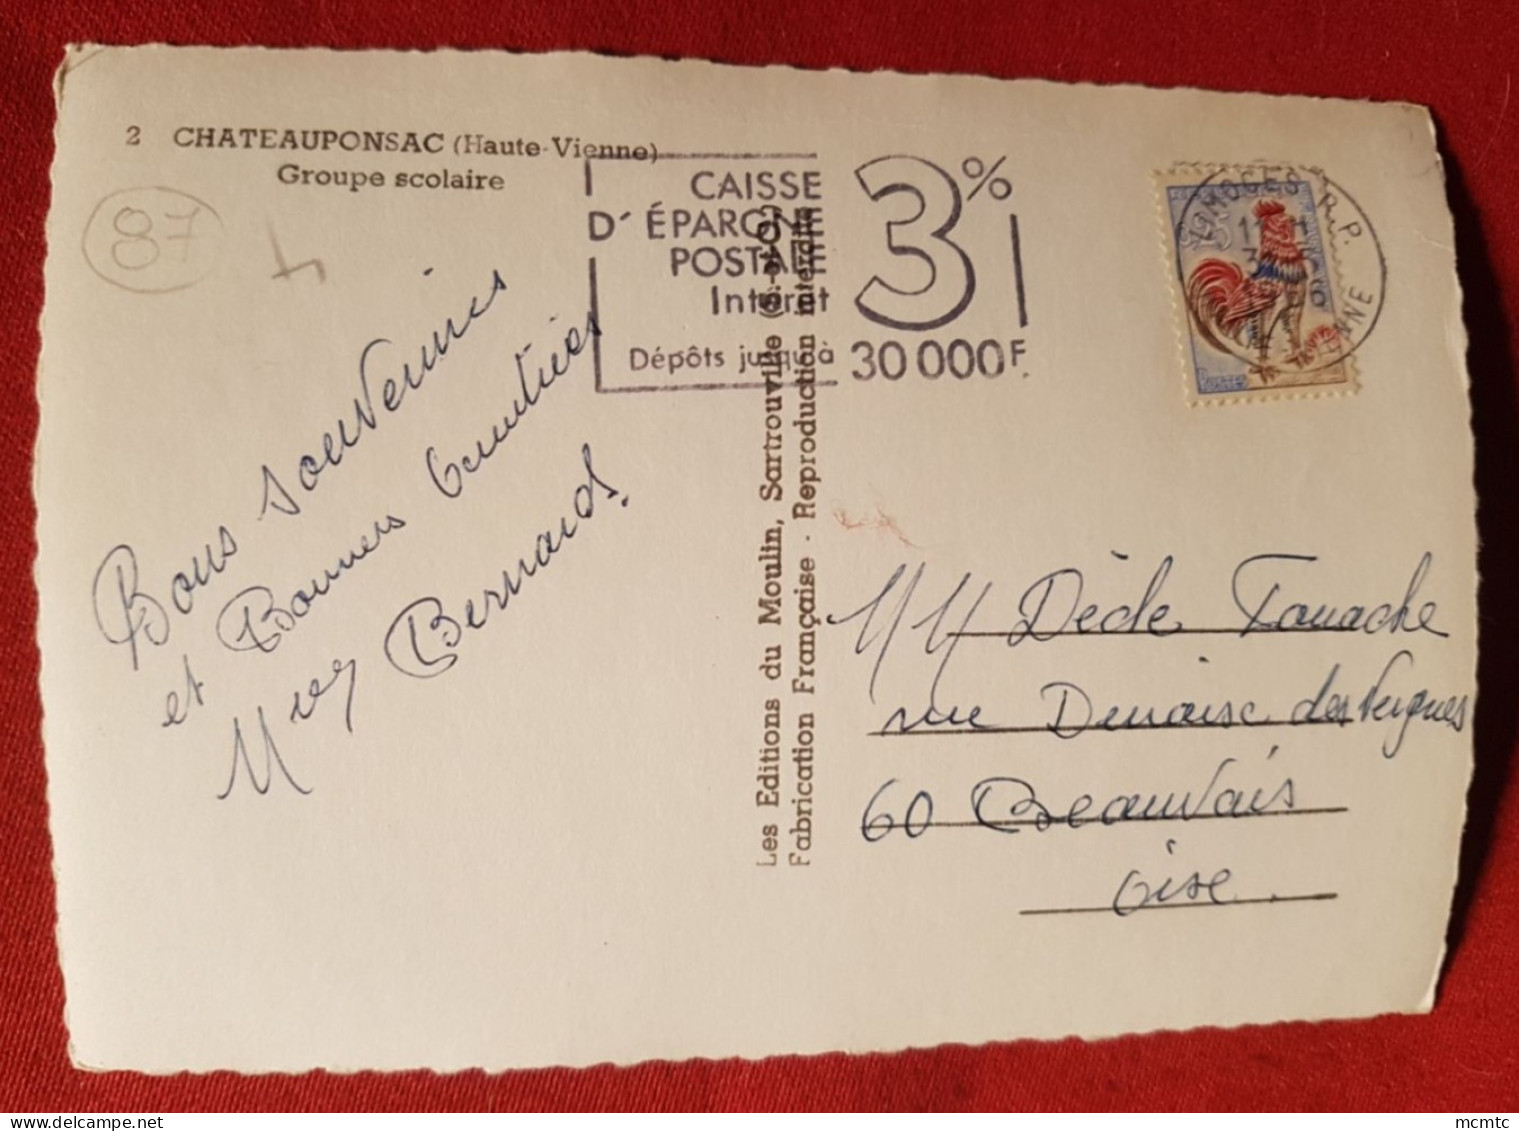 2 CHATEAUPONSAC (Haute-Vienne)
Groupe scolaire
87
CAISSE
D'ÉPARGNE
POSTALE
Intérêt
3%
Dépôts jusqu'à 30 000F.
LIMOGES R.P.
VIENNE
POSTES
Bons souvenirs
et Bonnes
Bernard.
Les Editions du Moulin, Sartrouville (S.-et-O.)
Fabrication Française - Reproduction interdite
MM Dècle
rue des Vergnes
60 Beauvais
Oise.
mcmtc